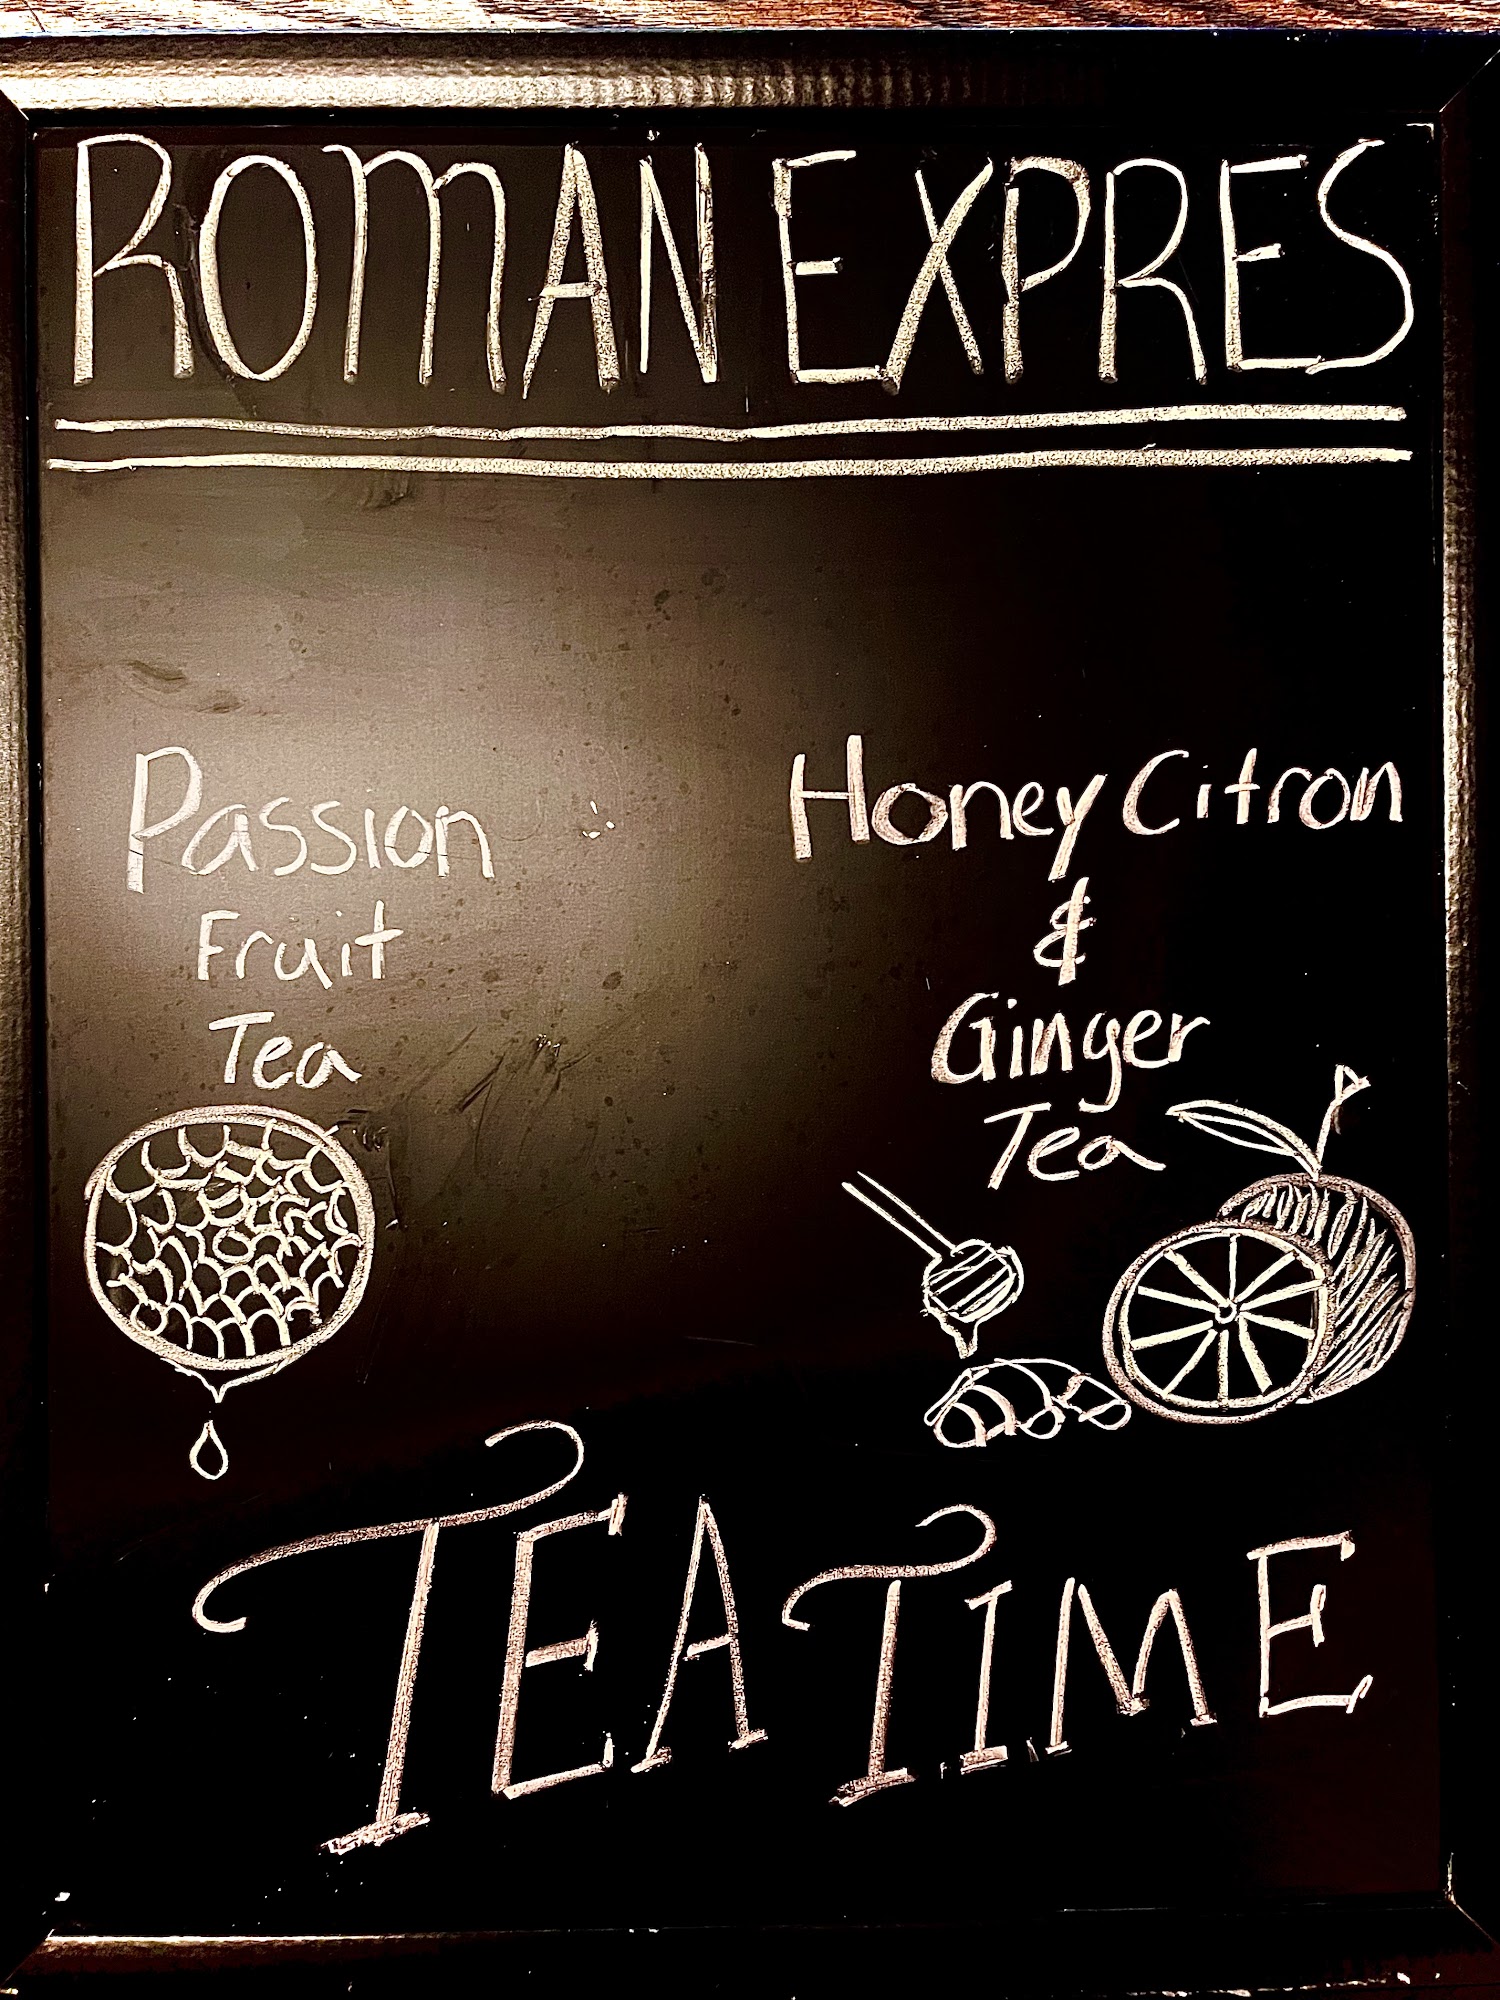 ROMAN EXPRES
Passion
Fruit
Tea
Honey Citron
&
Ginger
Tea
TEA TIME